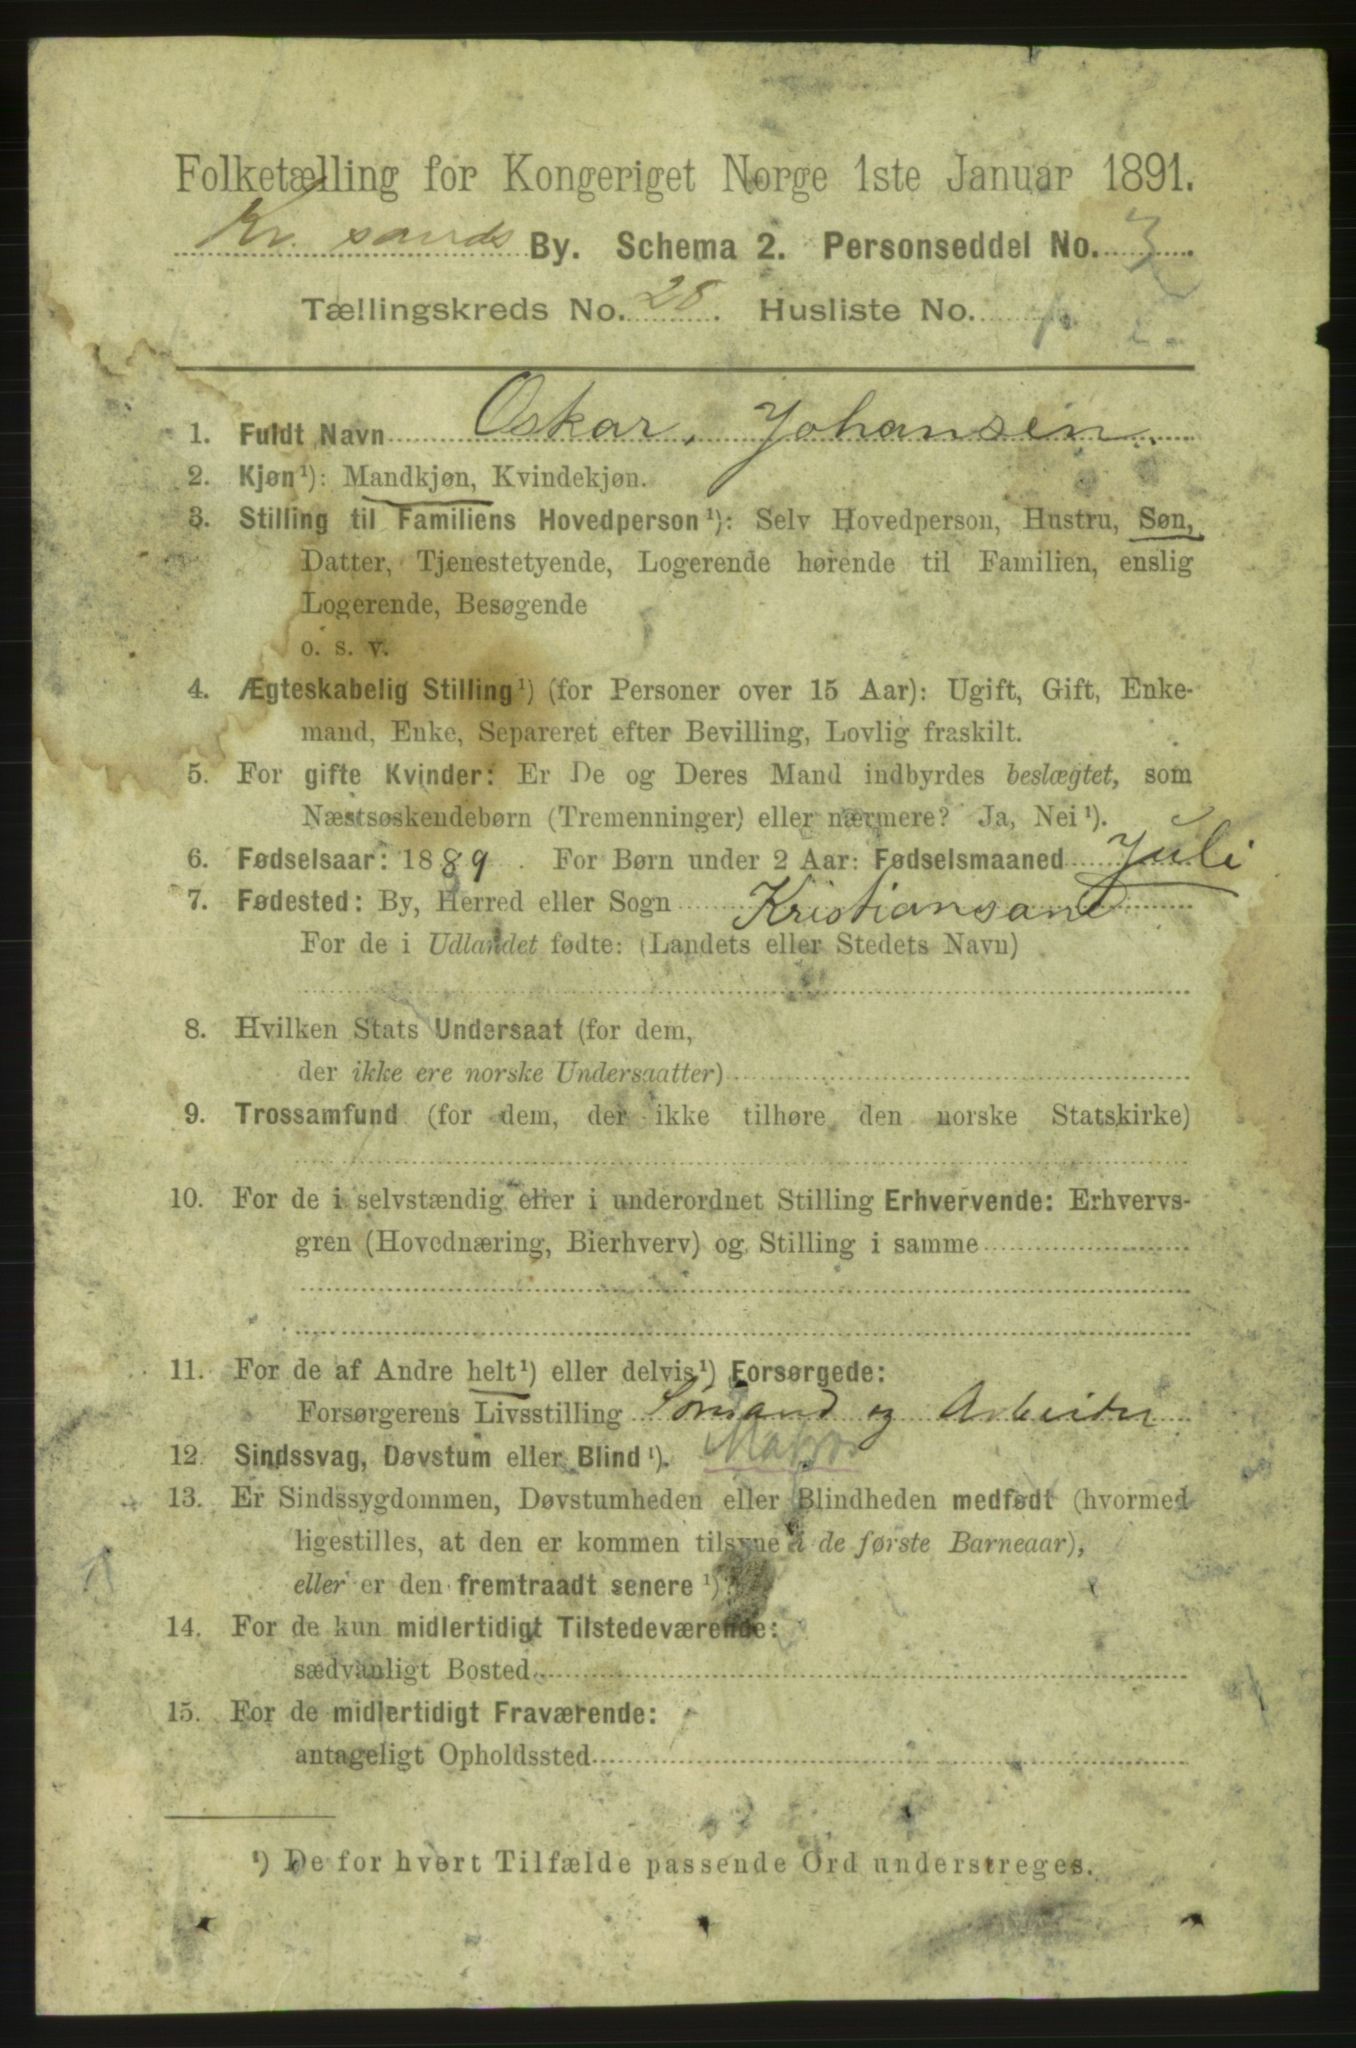 Folketælling for Kongeriget Norge 1ste Januar 1891.
Kr. sands By. Schema 2. Personseddel No. 3
Tællingskreds No. 28. Husliste No.
1. Fuldt Navn Oskar. Johansen.
2. Kjøn¹): Mandkjøn, Kvindekjøn.
3. Stilling til Familiens Hovedperson¹): Selv Hovedperson, Hustru, Søn,
Datter, Tjenestetyende, Logerende hørende til Familien, enslig
Logerende, Besøgende
o. s. v.
4. Ægteskabelig Stilling¹) (for Personer over 15 Aar): Ugift, Gift, Enke-
mand, Enke, Separeret efter Bevilling, Lovlig fraskilt.
5. For gifte Kvinder: Er De og Deres Mand indbyrdes beslægtet, som
Næstsøskendebørn (Tremenninger) eller nærmere? Ja, Nei¹).
6. Fødselsaar: 1889. For Børn under 2 Aar: Fødselsmaaned Juli
7. Fødested: By, Herred eller Sogn Kristiansand
For de i Udlandet fødte: (Landets eller Stedets Navn)
8. Hvilken Stats Undersaat (for dem,
der ikke ere norske Undersaatter)
9. Trossamfund (for dem, der ikke tilhøre den norske Statskirke)
10. For de i selvstændig eller i underordnet Stilling Erhvervende: Erhvervs-
gren (Hovednæring, Bierhverv) og Stilling i samme
11. For de af Andre helt¹) eller delvis¹) Forsørgede:
Forsørgerens Livsstilling Sømand og Arbeider
Matros
12. Sindssvag, Døvstum eller Blind¹).
13. Er Sindssygdommen, Døvstumheden eller Blindheden medfødt (hvormed
ligestilles, at den er kommen tilsyne i de første Barneaar),
eller er den fremtraadt senere¹)?
14. For de kun midlertidigt Tilstedeværende:
sædvanligt Bosted
15. For de midlertidigt Fraværende:
antageligt Opholdssted
¹) De for hvert Tilfælde passende Ord understreges.